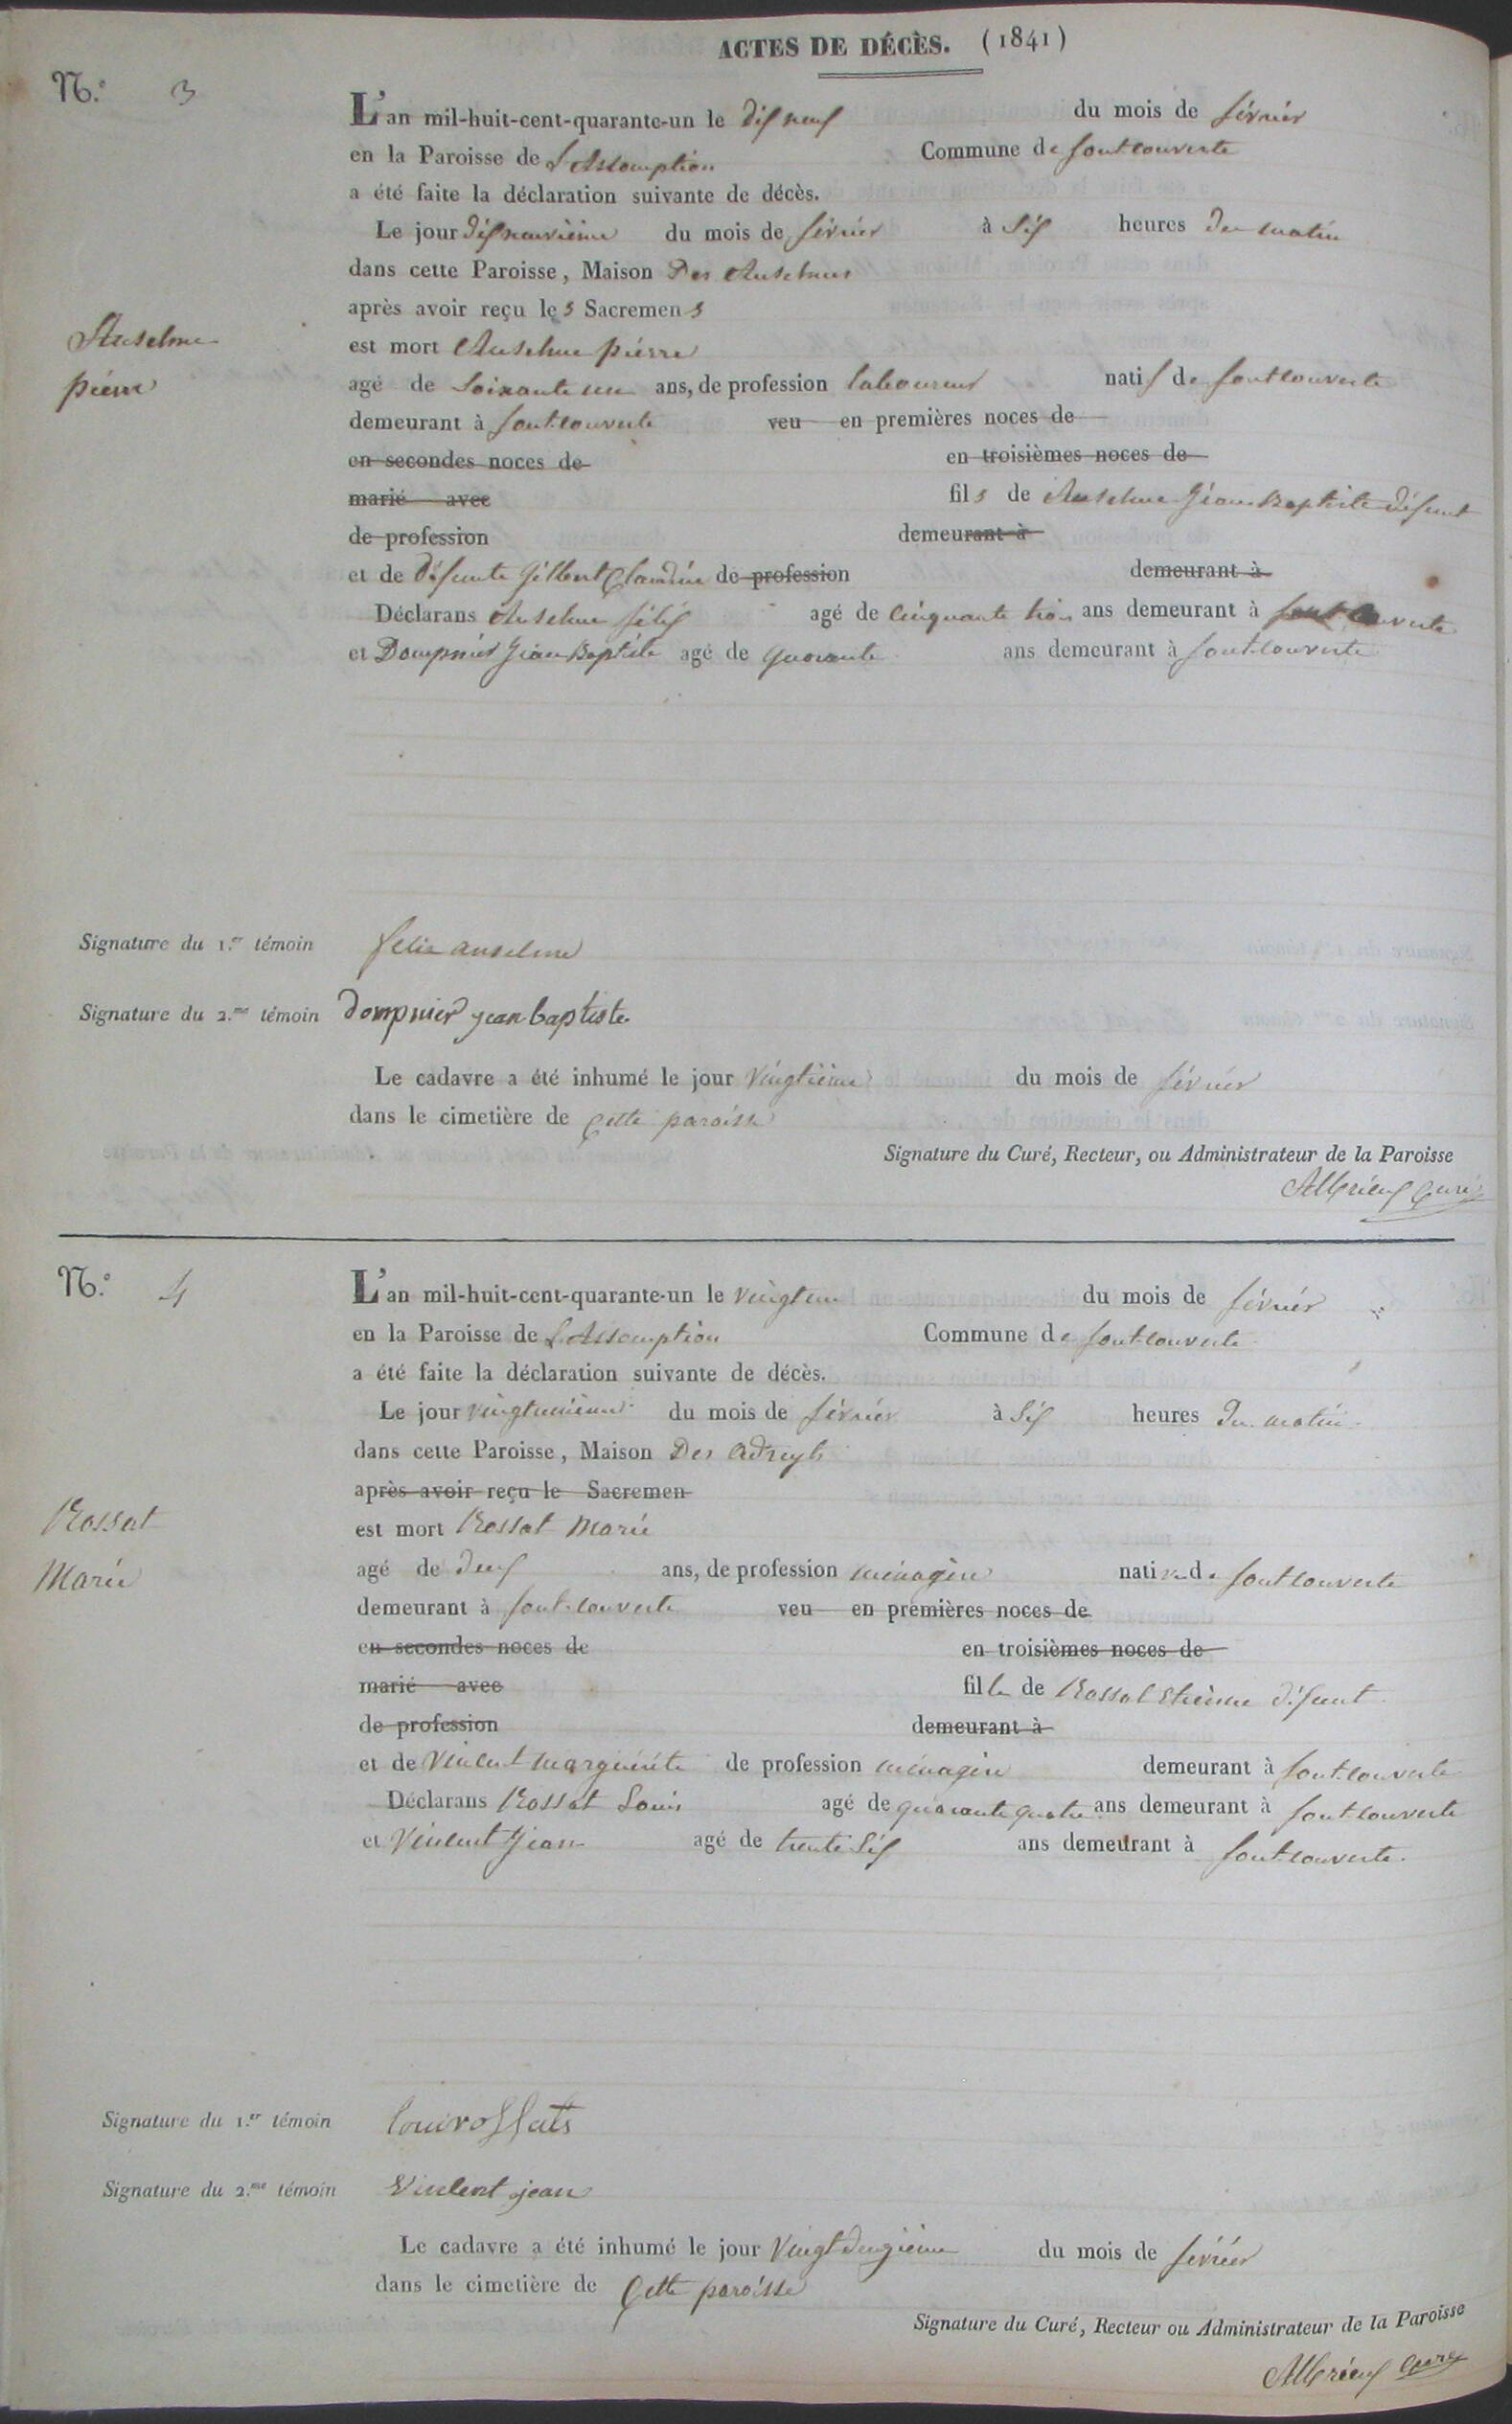 ACTES DE DÉCÈS. (1841)
N.º 3
L'an mil-huit-cent-quarante-un le dix neuf du mois de février
en la Paroisse de L'Assomption Commune de fontcouverte
a été faite la déclaration suivante de décès.
Le jour dixneuvième du mois de février à Six heures du matin
dans cette Paroisse, Maison Des Anselmes
après avoir reçu les Sacremens
Anselme
pierre
est mort Anselme pierre
agé de Soixante un ans, de profession laboureur natif de fontcouverte
demeurant à fontcouverte veu en premières noces de
en secondes noces de en troisièmes noces de
marié avec fils de Anselme Jean Baptiste défunt
de profession demeurant à
et de défunte Gilbert Claudine de profession demeurant à
Déclarans Anselme félix agé de Cinquante trois ans demeurant à fontcouverte
et Dompnier Jean Baptiste agé de quarante ans demeurant à fontcouverte
Signature du 1.er témoin felix anselme
Signature du 2.me témoin dompnier jean baptiste
Le cadavre a été inhumé le jour Vingtième du mois de février
dans le cimetière de Cette paroisse
Signature du Curé, Recteur, ou Administrateur de la Paroisse
Albrieux Curé
N.º 4
L'an mil-huit-cent-quarante-un le vingt un du mois de février
en la Paroisse de L'Assomption Commune de fontcouverte
a été faite la déclaration suivante de décès.
Le jour vingtunième du mois de février à Six heures du matin
dans cette Paroisse, Maison Des
après avoir reçu le Sacremen
Rossat
Marie
est mort Rossat Marie
agé de deux ans, de profession ménagère native de fontcouverte
demeurant à fontcouverte veu en premières noces de
en secondes noces de en troisièmes noces de
marié avec fille de Rossat Etienne défunt
de profession demeurant à
et de Vincent Marguerite de profession ménagère demeurant à fontcouverte
Déclarans Rossat Louis agé de quarante quatre ans demeurant à fontcouverte
et Vincent Jean agé de trente Six ans demeurant à fontcouverte.
Signature du 1.er témoin
Signature du 2.me témoin Vincent jean
Le cadavre a été inhumé le jour Vingt deuxième du mois de février
dans le cimetière de Cette paroisse
Signature du Curé, Recteur ou Administrateur de la Paroisse
Albrieux Curé